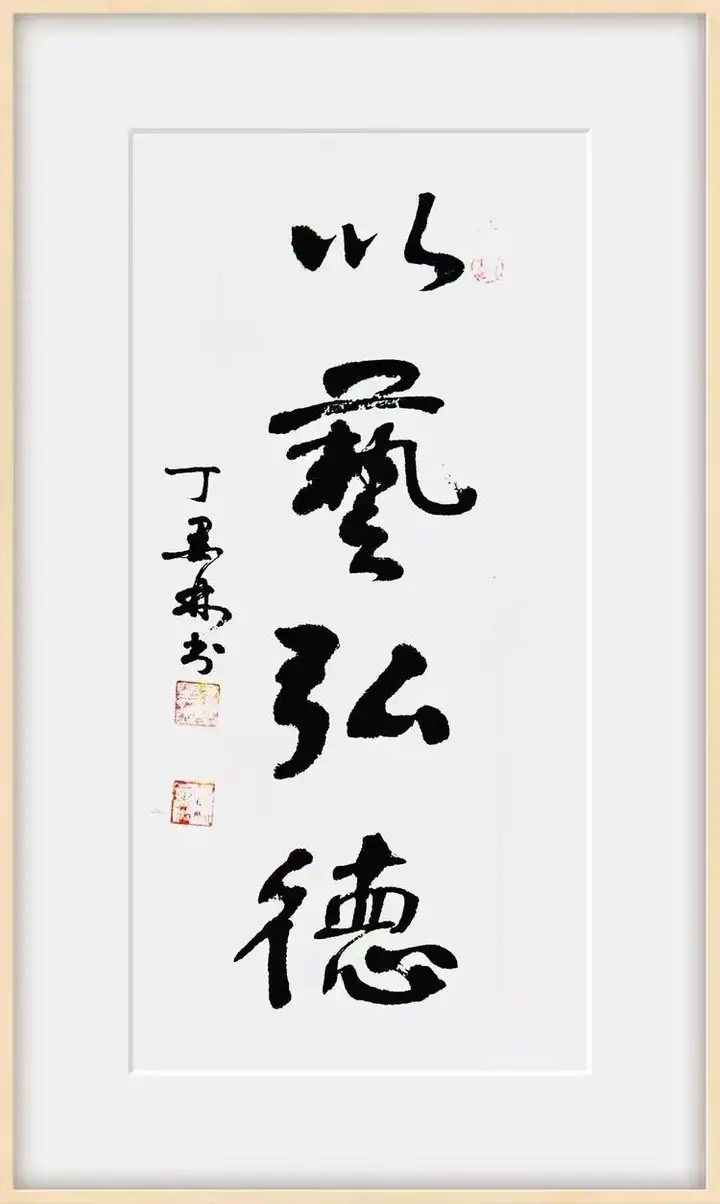 以藝弘德
丁墨林书